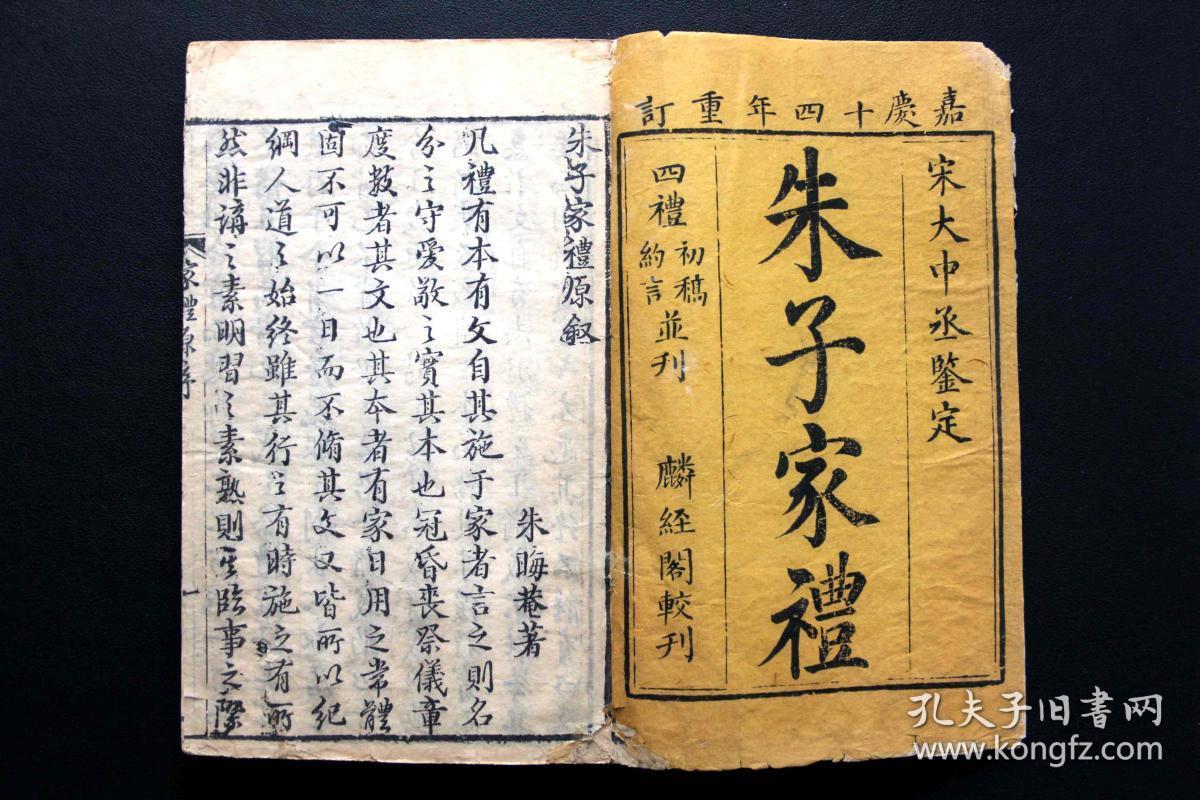 嘉慶十四年重訂
宋大中丞鑒定
朱子家禮
四禮初稿約言並刊
麟經閣較刊
朱子家禮原敘
朱晦菴著
凡禮有本有文自其施于家者言之則名
分之守愛敬之實其本也冠昏喪祭儀章
度數者其文也其本者有家日用之常體
固不可以一日而不脩其文又皆所以紀
綱人道之始終雖其行之有時施之有所
然非講之素明習之素熟則其臨事之際
家禮原序
一
孔夫子旧书网
www.kongfz.com